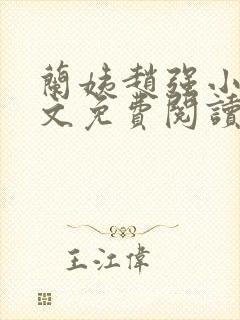 蘭姨趙强小
文免費閱讀
王江偉